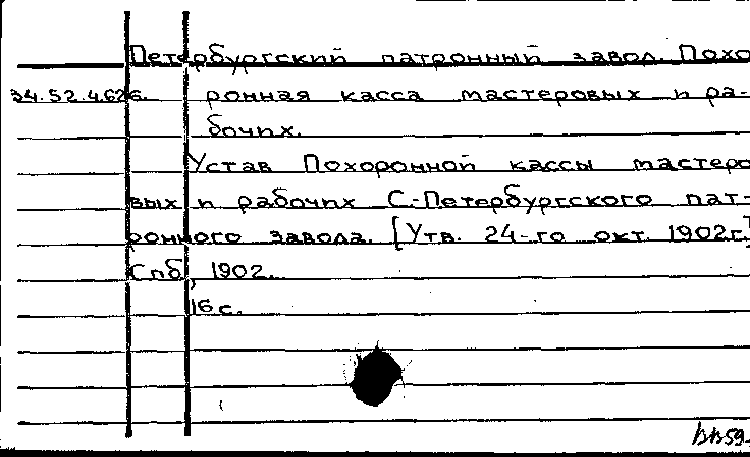 Петербургский патронный завод. Похо
34.52.4.626. ронная касса мастеровых и ра-
бочих.
Устав Похоронной кассы мастеро
вых и рабочих С.-Петербургского пат-
ронного завода. [Утв. 24-го окт. 1902г.]
Спб, 1902.
16 с.